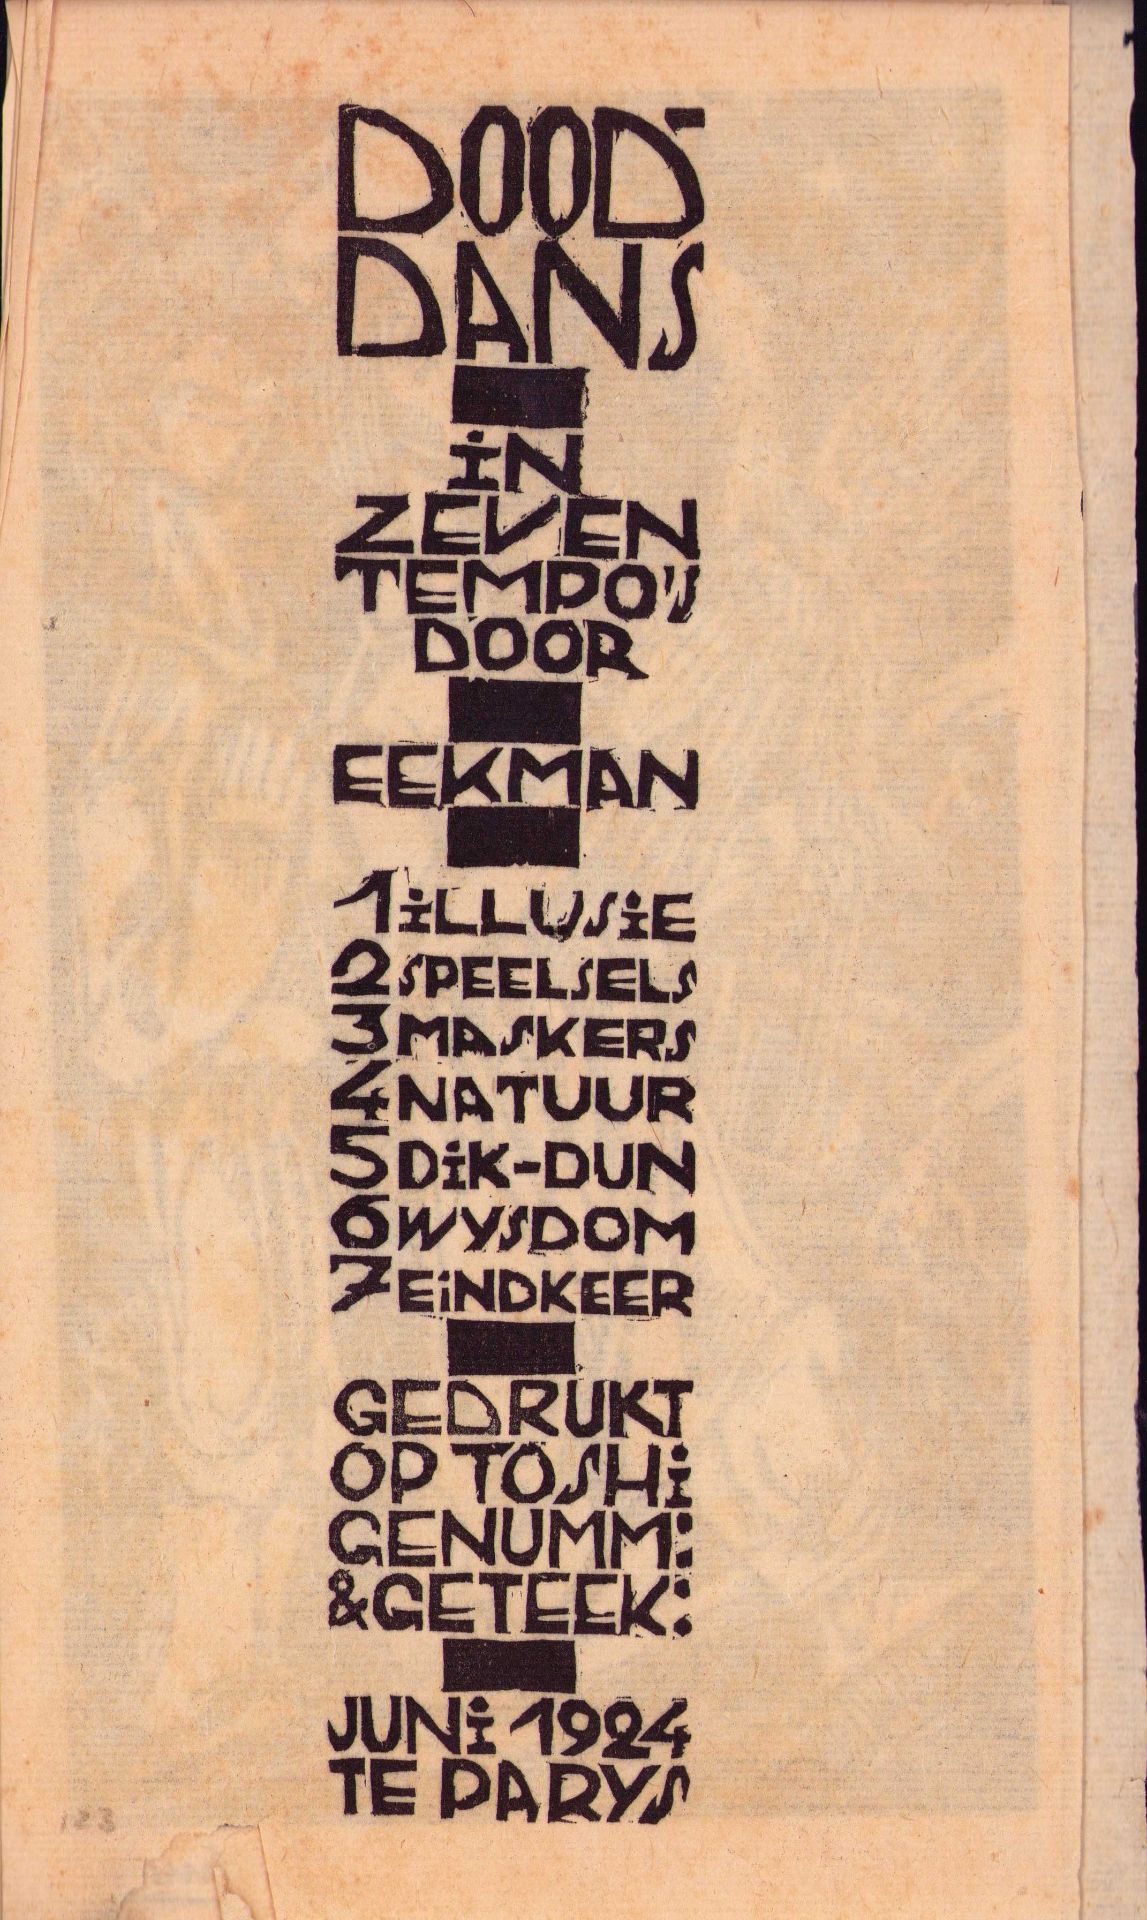 DOOD
DANS
iN
ZEVEN
TEMPO'S
DOOR
EEKMAN
1 iLLUSiE
2 SPEELSELS
3 MASKERS
4 NATUUR
5 DiK-DUN
6 WYSDOM
7 EiNDKEER
GEDRUKT
OP TOSHi
GENUMM:
& GETEEK:
JUNi 1924
TE PARYS
123